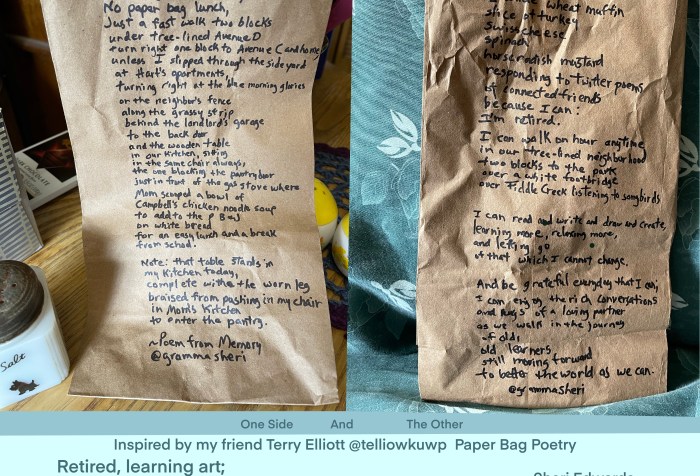 No paper bag lunch,
Just a fast walk two blocks
under tree-lined Avenue D
turn right one block to Avenue C and home
unless I slipped through the side yard
at Hart's apartments,
turning right at the blue morning glories
on the neighbor's fence
along the grassy strip
behind the landlord's garage
to the back door
and the wooden table
in our kitchen, sitting
in the same chair always,
the one blocking the pantry door
just in front of the gas stove where
Mom scooped a bowl of
Campbell's chicken noodle soup
to add to the P B and J
on white bread
for an easy lunch and a break
from school.
Note: that table stands in
my kitchen today,
complete with the worn leg
braised from pushing in my chair
in Mom's Kitchen
to enter the pantry.
~Poem from Memory
@grammasheri
Salt
wheat muffin
slice of turkey
Swiss cheese
spinach
horseradish mustard
responding to twitter poems
of connected friends
because I can:
I'm retired.
I can walk an hour anytime
in our tree-lined neighborhood
two blocks to the park
over a white footbridge
over Fiddle Creek listening to songbirds
I can read and write and draw and create,
learning more, relaxing more,
and letting go
of that which I cannot change.
And be grateful everyday that I can;
I can enjoy the rich conversations
and hugs of a loving partner
as we walk in the journey
of old;
old learners
still moving forward
to better the world as we can.
@grammasheri
One Side And The Other
Inspired by my friend Terry Elliott @telliowkuwp Paper Bag Poetry
Retired, learning art;
Sheri Edwards